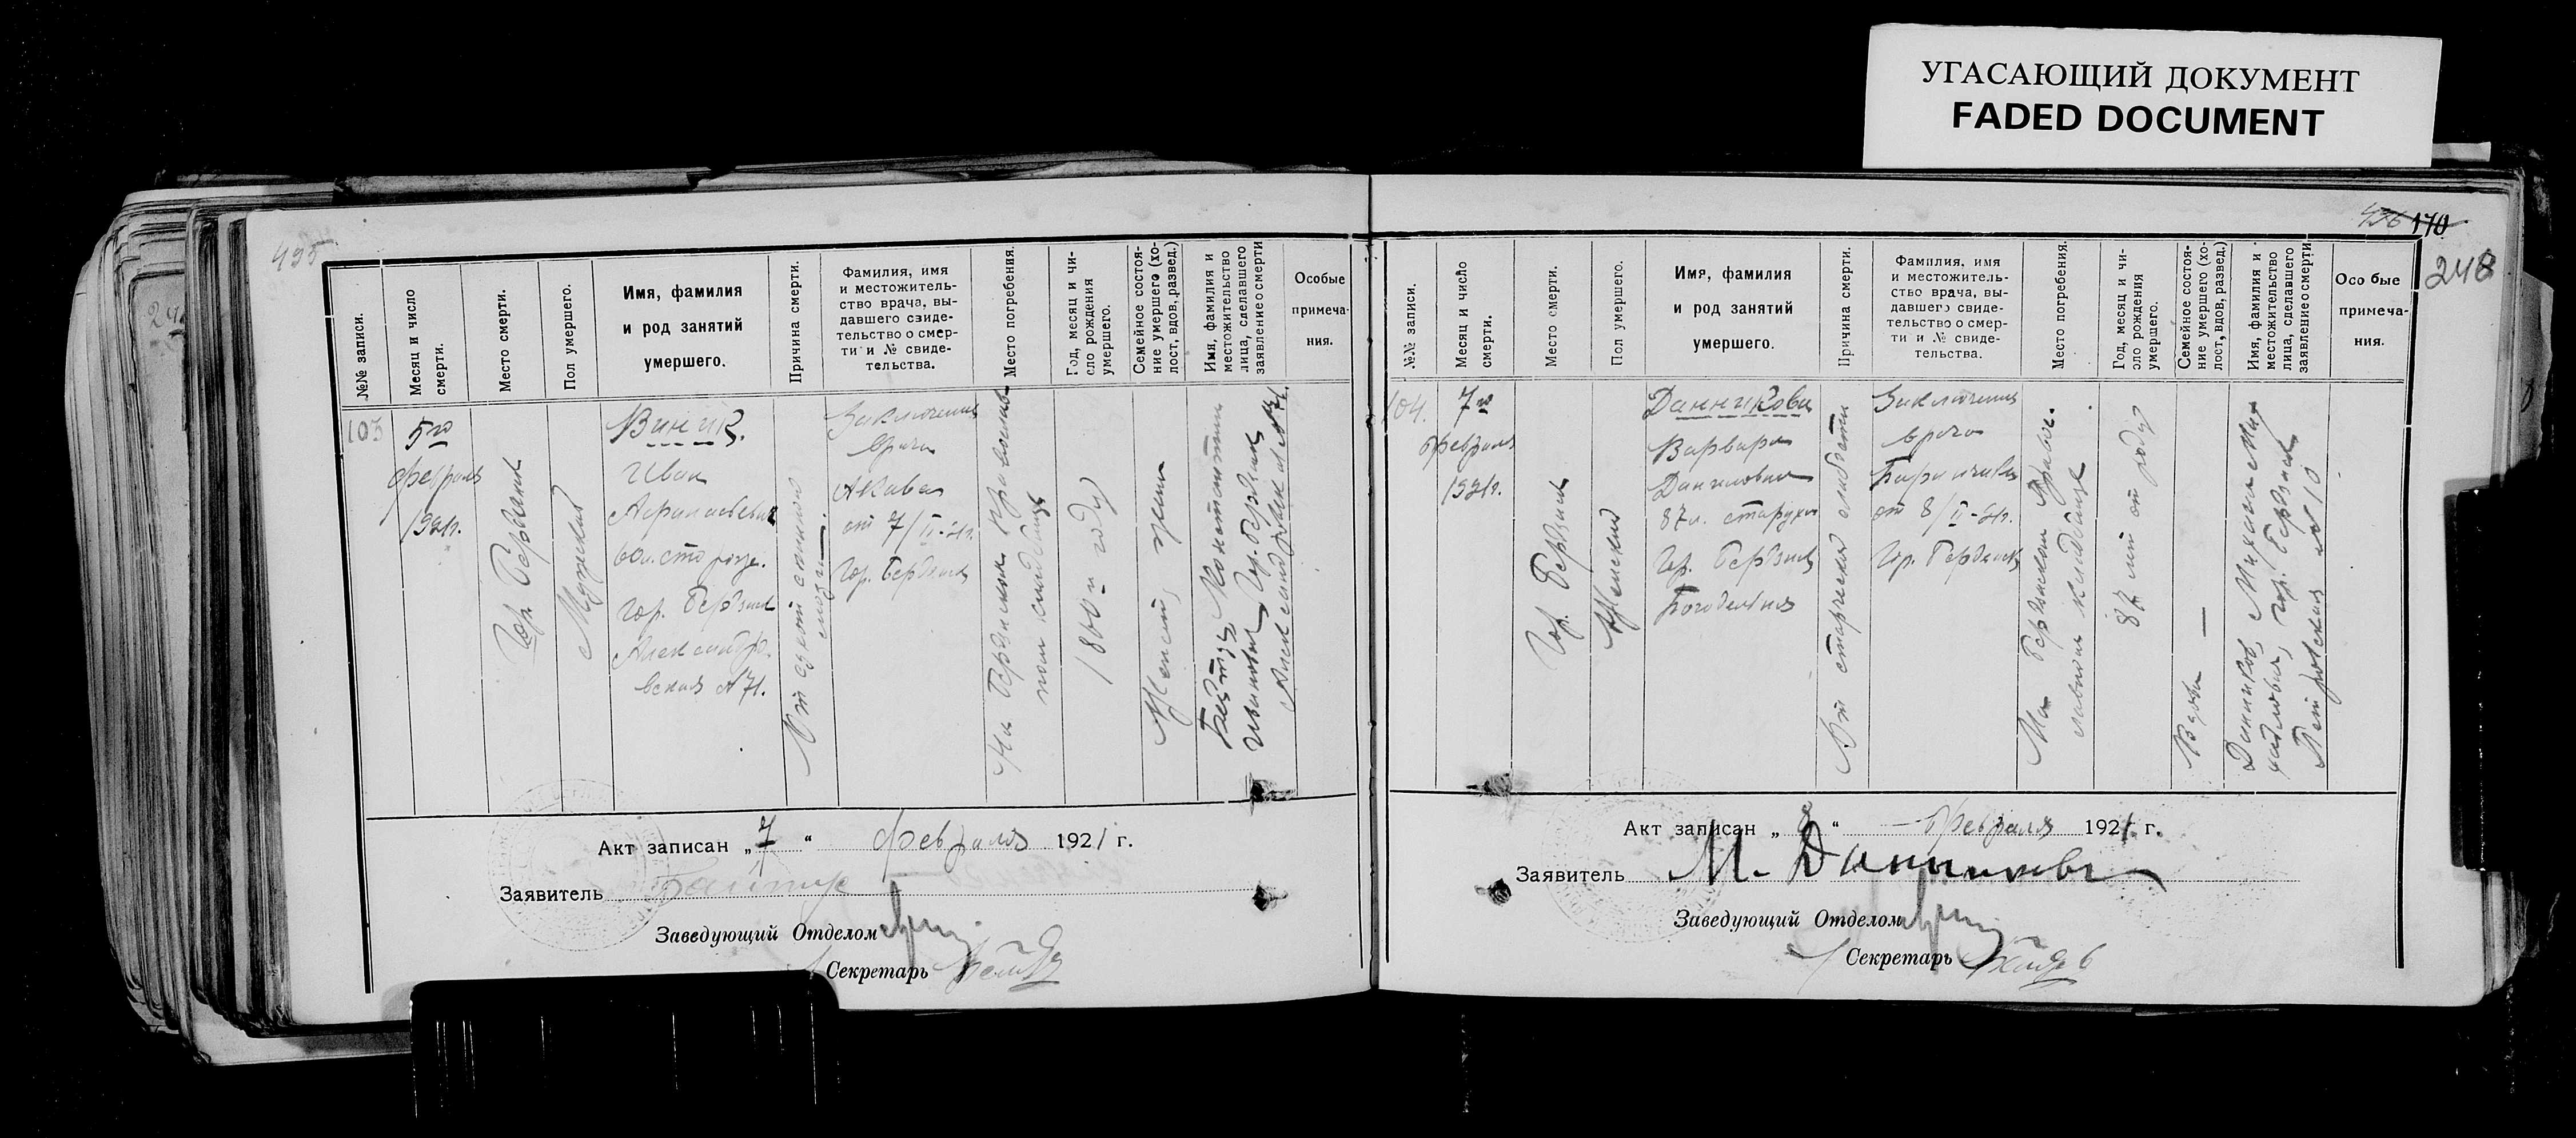 УГАСАЮЩИЙ ДОКУМЕНТ
FADED DOCUMENT
495
№№ записи.
Месяц и число
смерти.
Место смерти.
Пол умершего.
Имя, фамилия
и род занятий
умершего.
Причина смерти.
Фамилия, имя
и местожитель-
ство врача, вы-
давшего свиде-
тельство о смер-
ти и № свиде-
тельства.
Место погребения.
Год, месяц и чи-
сло рождения
умершего.
Семейное состоя-
ние умершего (хо-
лост, вдов., развед.)
Имя, фамилия и
местожительство
лица, сделавшего
заявление о смерти
Особые
примеча-
ния.
103
5го
февраля
1921г.
Гор. Бердянск
Мужской
Виник.
Иван
Афанасьевич
гор. Бердянск
Александро-
вская № 71.
От
Заключение
врача
от 7/II-21г.
Гор. Бердянск
На Бердянском православ-
ном кладбище
1800 году
Женат
Константин
Иванович, Гор. Бердянск
Александровская № 71.
Акт записан „7“ февраля 1921 г.
Заявитель
Заведующий Отделом
Секретарь
436 170
248
№№ записи.
Месяц и число
смерти.
Место смерти.
Пол умершего.
Имя, фамилия
и род занятий
умершего.
Причина смерти.
Фамилия, имя
и местожитель-
ство врача, вы-
давшего свиде-
тельство о смер-
ти и № свиде-
тельства.
Место погребения.
Год, месяц и чи-
сло рождения
умершего.
Семейное состоя-
ние умершего (хо-
лост, вдов, развед.)
Имя, фамилия и
местожительство
лица, сделавшего
заявление о смерти
Особые
примеча-
ния.
104.
7го
февраля
1921г.
Гор. Бердянск
Женский
Данникова
Варвара
Даниловна
87 л. старуха
Гор. Бердянск
Богодельня
От старческой слабости
Заключение
врача
от 8/II-21г.
Гор. Бердянск
На Бердянском Право-
славном кладбище
87 лет от роду
Вдова —
Данников, Михаил Ми-
хайлович, гор. Бердянск
Петровская № 10
Акт записан „8“ февраля 1921 г.
Заявитель М. Данников
Заведующий Отделом
Секретарь